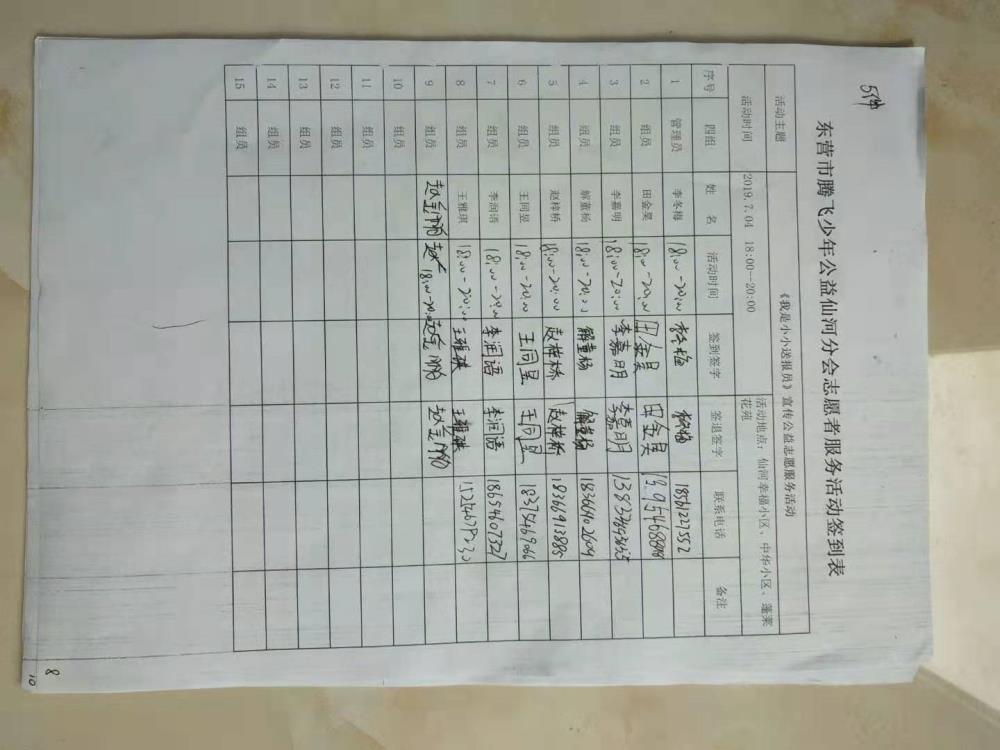 东营市腾飞少年公益仙河分会志愿者服务活动签到表
活动主题 《我是小小送报员》宣传公益志愿服务活动
活动时间 2019.7.04 18:00--20:00 活动地点：仙河幸福小区、中华小区、蓬莱
花苑
序号 四组 姓 名 活动时间 签到签字 签退签字 联系电话 备注
1 管理员 李冬梅 18:00-20:00 18561227552
2 组员 田金昊 18:00-20:00 田金昊 田金昊
3 组员 李嘉明 18:00-20:00 李嘉明 李嘉明
4 组员 解童杨 18:00-20:00 解童杨 解童杨
5 组员 赵梓桥 18:00-20:00 赵梓桥 赵梓桥 18366913885
6 组员 王同昱 18:00-20:00 王同昱 王同昱 18375469066
7 组员 李润语 18:00-20:00 李润语 李润语 18654607327
8 组员 王雅琪 18:00-20:00 王雅琪 王雅琪
9 组员 18:00-20:00
10 组员
11 组员
12 组员
13 组员
14 组员
15 组员
8
10